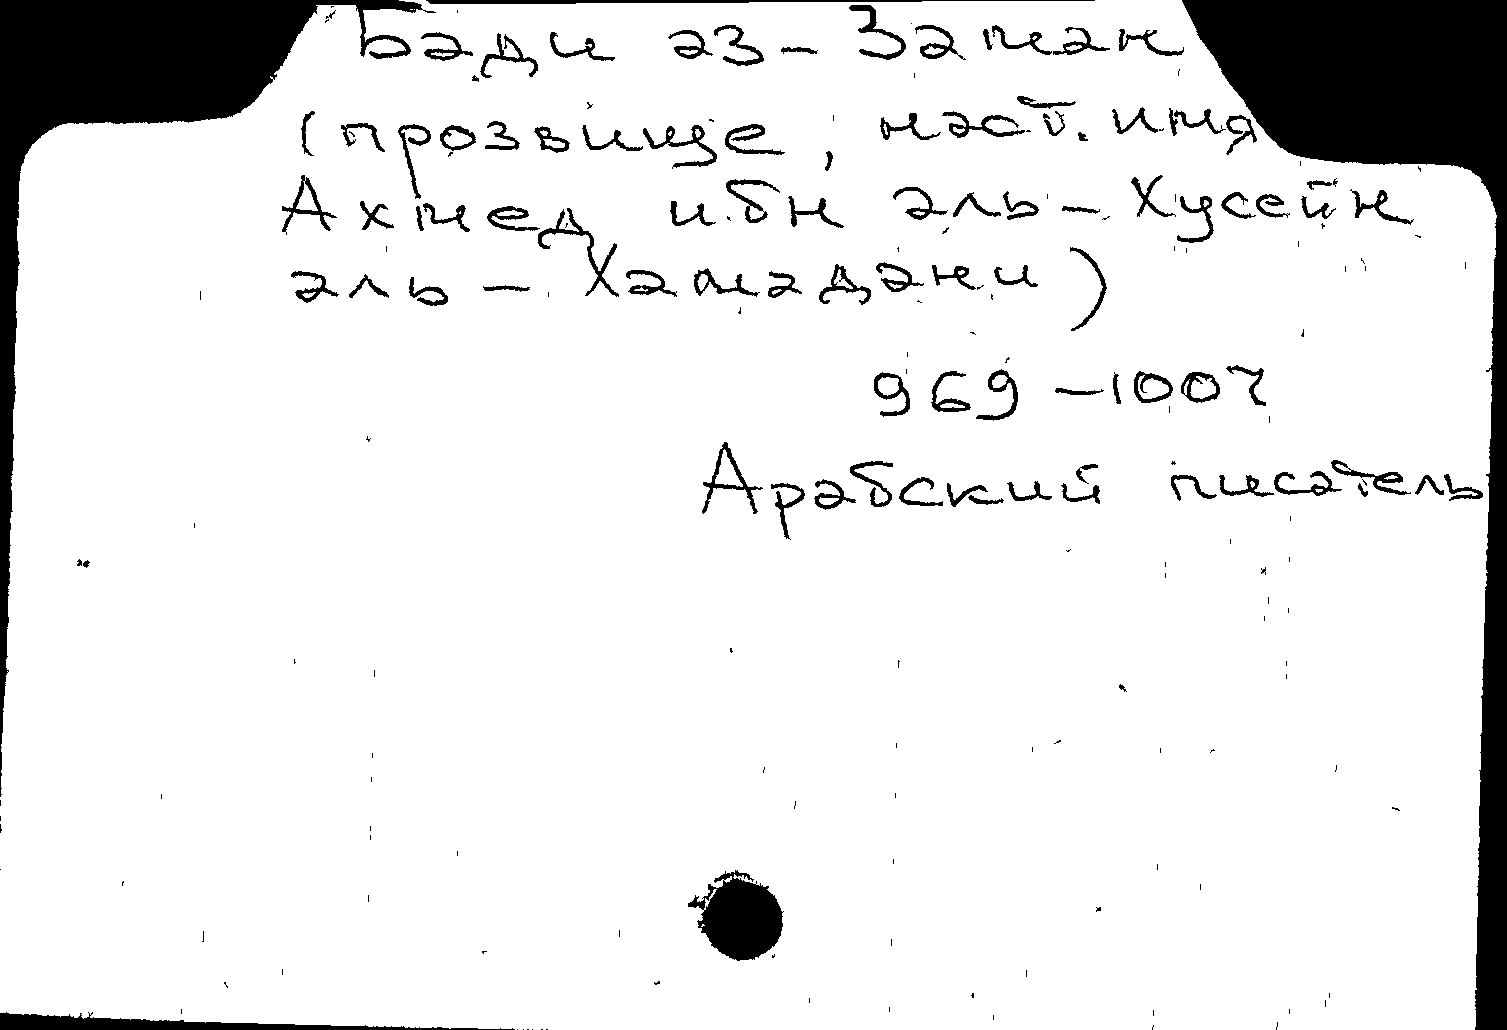 Бади аз-Заман
(прозвище, наст. имя
Ахмед ибн аль-Хусейн
аль-Хамадани)
969-1007
Арабский писатель